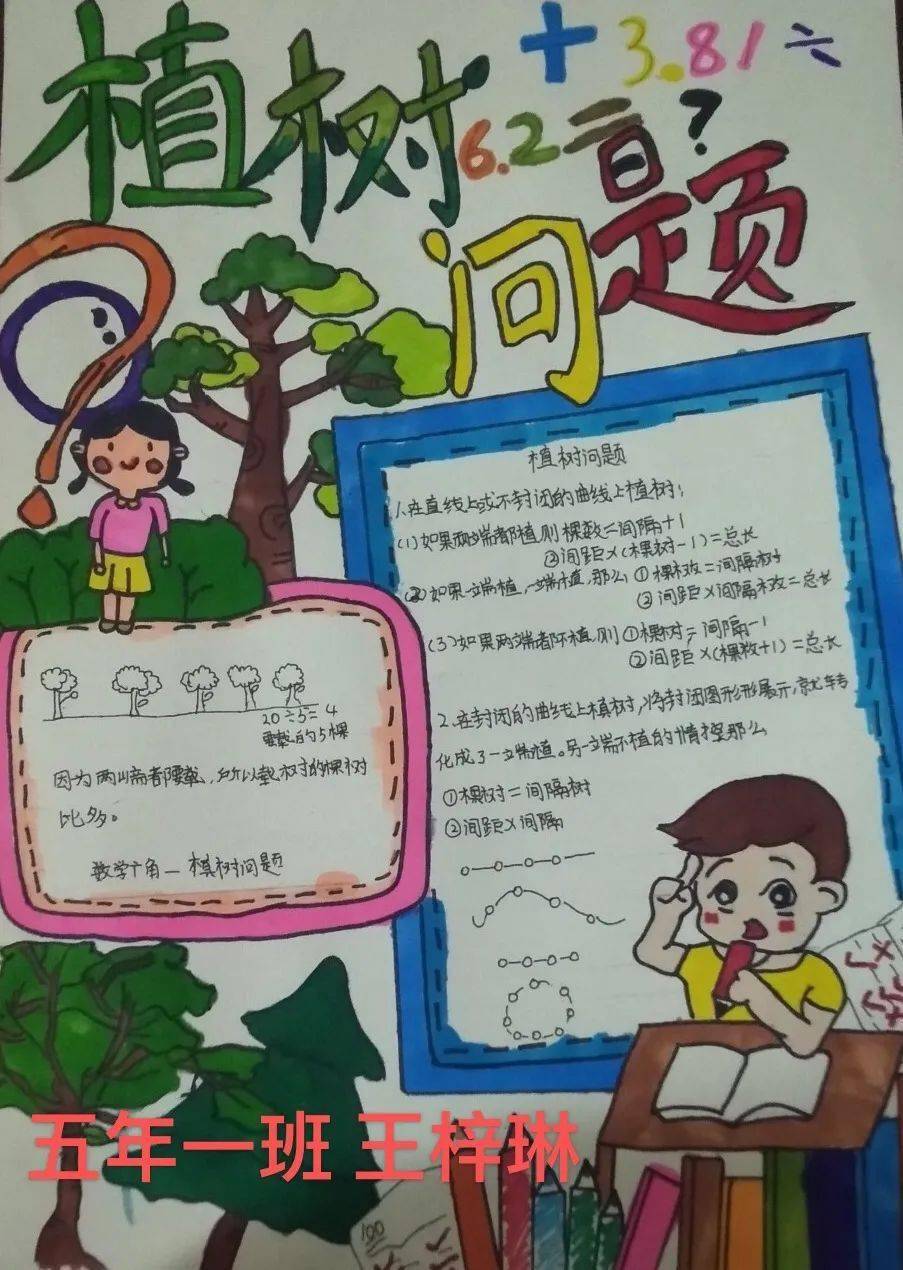 植树
+ 3.81 ÷
6.2 = ?
问题
植树问题
1.在直线上或不封闭的曲线上植树:
(1)如果两端都植则棵数=间隔+1
②间距×(棵树-1)=总长
(2)如果一端植,一端植,那么①棵树=间隔树
②间距×间隔数=总长
(3)如果两端都不植,则①棵树=间隔-1
②间距×(棵数+1)=总长
2.在封闭的曲线上植树,将封闭图形形展示,就转
化成了一端植。另一端不植的情
那么
①棵树=间隔树
②间距×间隔
20÷5=4
要栽的5棵
因为两端都要栽,所以栽树的棵树
比多。
数学广角—植树问题
100
五年一班 王梓琳